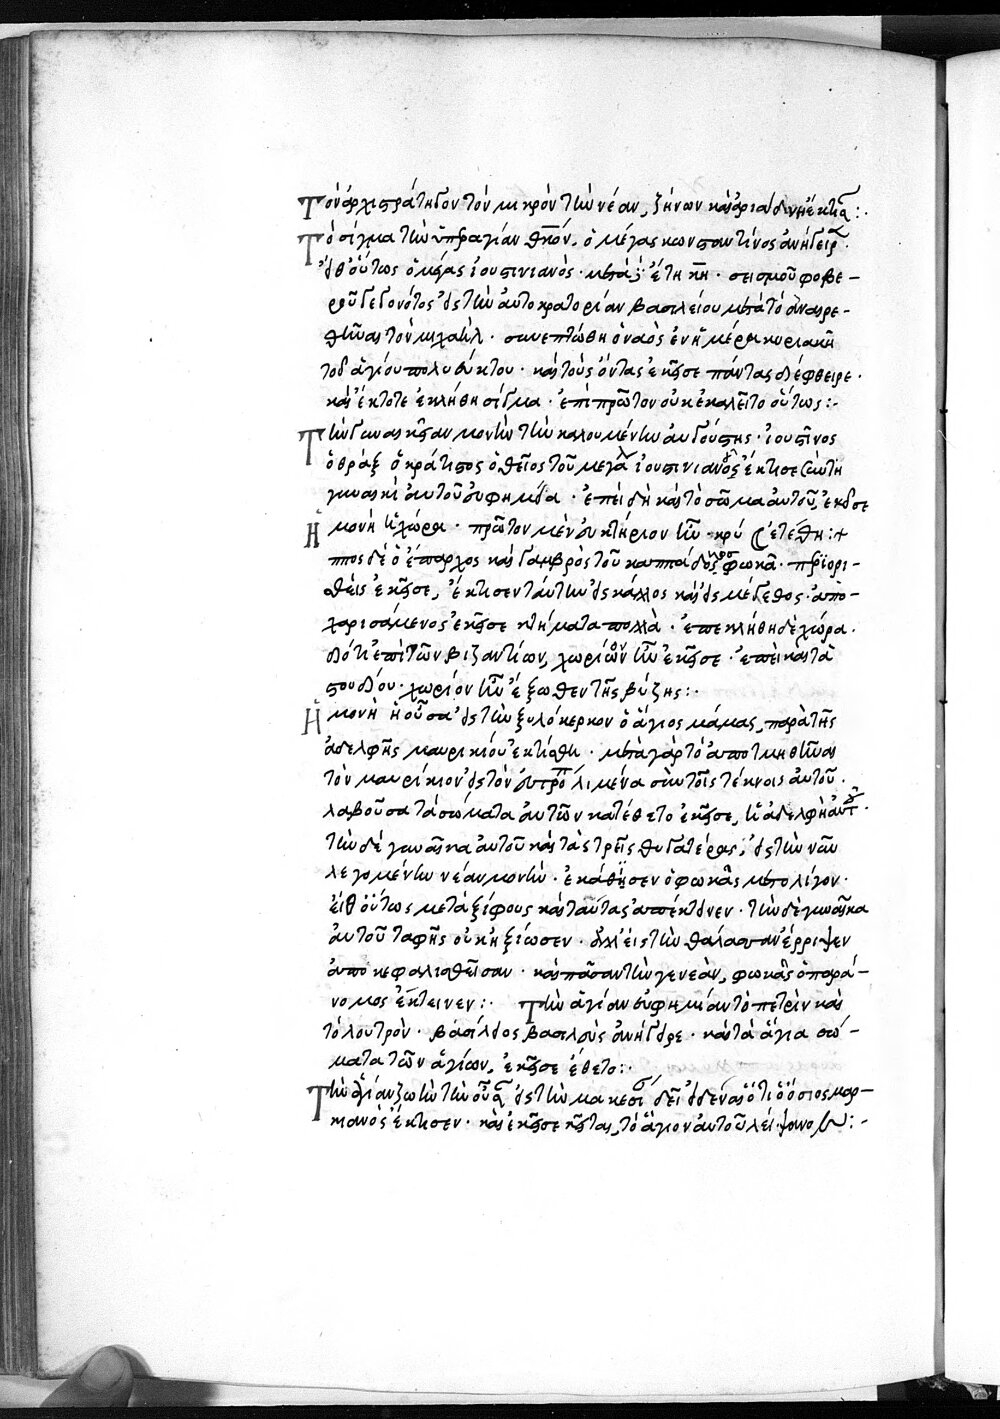 Τὸν ἀρχιστράτηγον τὸν μικρὸν τὴν νέαν, ζήνων καὶ ἀριάδνη ἔκτισ:
Τὸ σίγμα τὴν ὑπεραγίαν θκον, ὁ μέγας κωνσταντίνος ἀνήγειρ.
εἶθ οὕτως ὁ μέγας ἰουστινιανός. μετὰ ἔτη κη. σεισμοῦ φοβε-
ροῦ γεγονότος εἰς τὴν αὐτοκρατορίαν βασιλείου μετὰ τὸ ἀναιρε-
θῆναι τὸν μιχαήλ. συνεπτώθη ὁ ναὸς ἐν ἡμέρᾳ κυριακῆ
τοῦ ἁγίου πολυεύκτου. καὶ τοὺς ὄντας ἐκεῖσε πάντας διέφθειρε.
καὶ ἔκτοτε ἐκλήθη σίγμα. ἐπὶ πρῶτον οὐκ ἐκαλεῖτο οὕτως:-
Τὴν γυναικείαν μονὴν τὴν καλουμένην αὐγούστης. ἰουστῖνος
ὁ θρᾲξ ὁ κράτιστος ὁ θεῖος τοῦ μεγάλ ἰουστινιανοῦ ἔκτισε σὺν τῇ
γυναικὶ αὐτοῦ εὐφημίᾳ. ἐπειδὴ καὶ τὸ σῶμα αὐτοῦ, ἐκεῖσε
ἐτέθη:+
Ἡ μονὴ ἡ χώρα. πρῶτον μὲν εὐκτήριον ἦν. κρί
σπος δὲ ὁ ἔπαρχος καὶ γαμβρὸς τοῦ καππάδοκος φωκᾶ. περιορι-
σθεὶς ἐκεῖσε, ἔκτισεν ταύτην εἰς κάλλος καὶ εἰς μέγεθος. ἀπο-
χαρισάμενος ἐκεῖσε κτήματα πολλά. ἐπεκλήθη δὲ χώρα.
διότι ἐπὶ τῶν βιζαντίων, χωρίον ἦν ἐκεῖσε. ἐπεὶ καὶ τὰ
σπουδίου. χωρίον ἦν ἔξωθεν τῆς βύζης:.
Ἡ μονὴ ἡ οὖσα εἰς τὴν ξυλόκερκον ὁ ἅγιος μάμας, παρὰ τῆς
ἀδελφῆς μαυρικίου ἐκτίσθη. μετὰ γὰρ τὸ ἀποτμηθῆναι
τὸν μαυρίκιον εἰς τὸν εὐτροπίου λιμένα σὺν τοῖς τέκνοις αὐτοῦ.
λαβοῦσα τὰ σώματα αὐτῶν κατέθετο ἐκεῖσε, ἡ ἀδελφὴ αὐτοῦ.
τὴν δὲ γυναῖκα αὐτοῦ καὶ τὰς τρεῖς θυγατέρας, εἰς τὴν νῦν
λεγομένην νέαν μονήν. ἐκάθησεν ὁ φωκᾶς μετ ὀλίγον.
εἶθ οὕτως μετὰ ξίφους καὶ ταύτας ἀπέκτεινεν. τὴν δὲ γυναῖκα
αὐτοῦ ταφῆς οὐκ ἠξίωσεν. ἀλλ εἰς τὴν θάλασσαν ἔρριψεν
ἀποκεφαλισθεῖσαν. καὶ πᾶσαν τὴν γενεάν, φωκᾶς ὁ παρά-
νομος ἔκτεινεν:. Τὴν ἁγίαν εὐφημίαν τὸ πετρὶν καὶ
τὸ λουτρόν. βασίλειος βασιλεὺς ἀνήγειρε. καὶ τὰ ἅγια σώ-
ματα τῶν ἁγίων, ἐκεῖσε ἔθετο:.
Τὴν ἁγίαν ζωὴν τὴν οὖσαν εἰς τὴν μακεσι δεῖ εἰδέναι ὅτι ὁ ὅσιος μαρ-
κιανὸς ἔκτισεν. καὶ ἐκεῖσε κεῖται, τὸ ἅγιον αὐτοῦ λείψανον:-